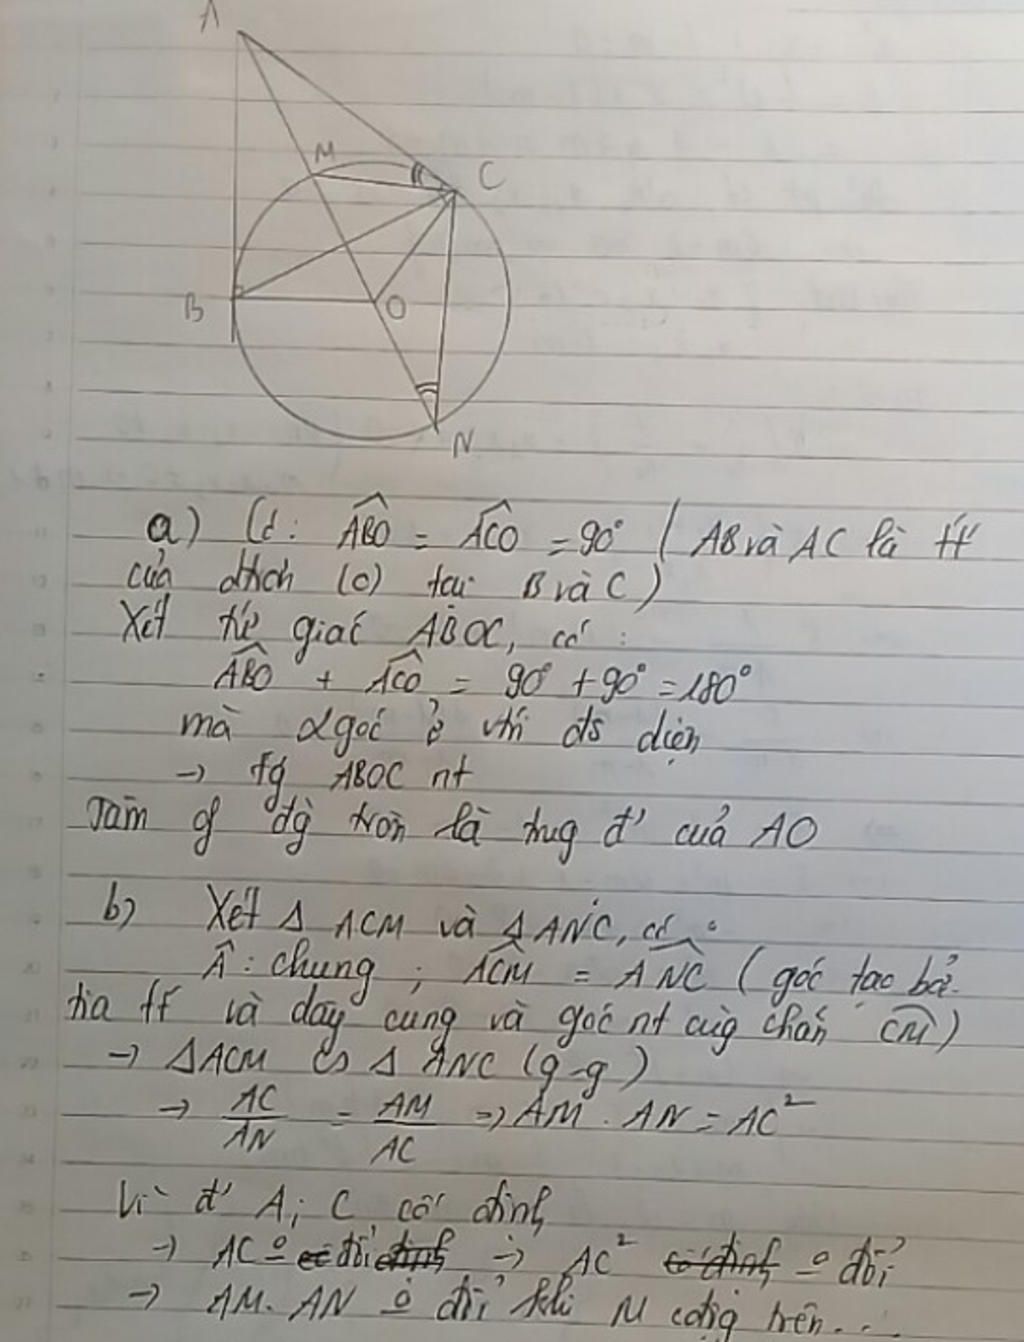 A
M
C
B
O
N
a) Có: ABO = ACO = 90° ( AB và AC là tt
của đtròn (O) tại B và C)
Xét tứ giác ABOC, có :
ABO + ACO = 90° + 90° = 180°
mà 2 góc ở vtrí đđ diện
→ tg ABOC nt
Tâm đg tròn là trug đ' của AO
b) Xét Δ ACM và Δ ANC, có :
Â : chung ; ACM = ANC ( góc tạo bở
tia tt và dây cung và góc nt cùg chắn CM )
→ ΔACM ∽ Δ ANC (g-g)
→ AC/AN = AM/AC => AM . AN = AC²
Vì đ' A; C cố định
→ AC đổi → AC² đổi
→ AM. AN đổi khi M trên...